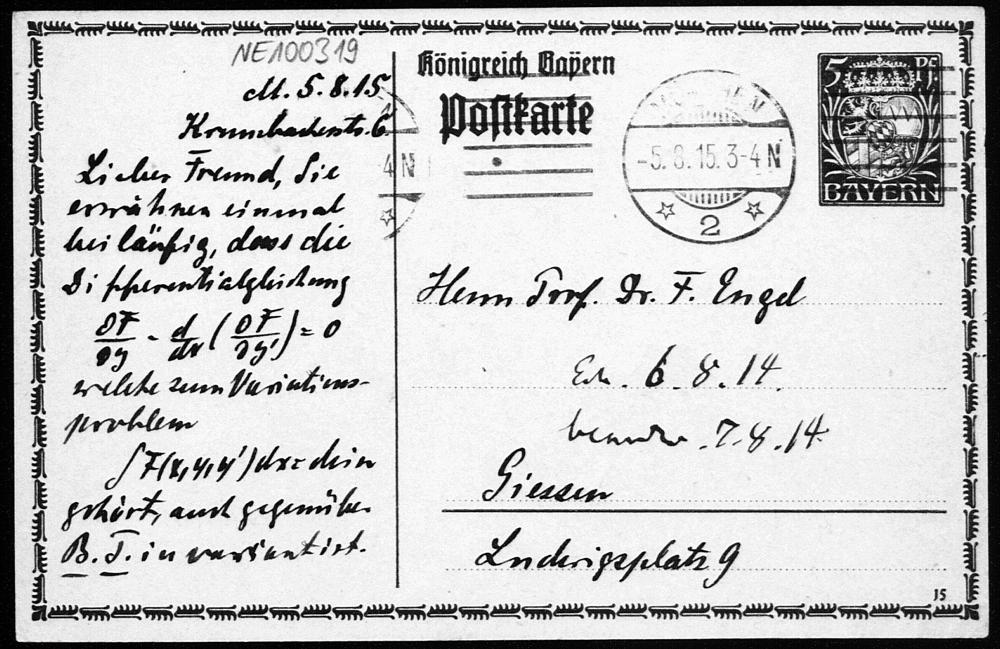 NE100319
M. 5.8.15
Krumbacherstr. 6.
Lieber Freund, Sie
erwähnen einmal
beiläufig, dass die
Differentialgleichung
∂F/∂y - d/dx (∂F/∂y') = 0
welche zum Variations-
problem
∫F(x,y,y')dx = dein
gehört, auch gegenüber
B.T. invariant ist.
Königreich Bayern
Postkarte
4 N
MÜNCHEN
-5.8.15.3-4 N
2
5 Pf
BAYERN
Herrn Prof. Dr. F. Engel
6.8.14.
7.8.14.
Giessen
Ludwigsplatz 9
15